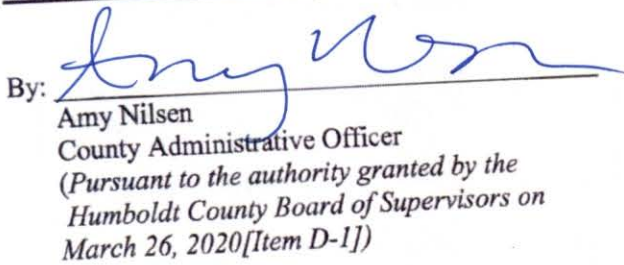 By: Amy Nilsen
Amy Nilsen
County Administrative Officer
(Pursuant to the authority granted by the
Humboldt County Board of Supervisors on
March 26, 2020[Item D-1])